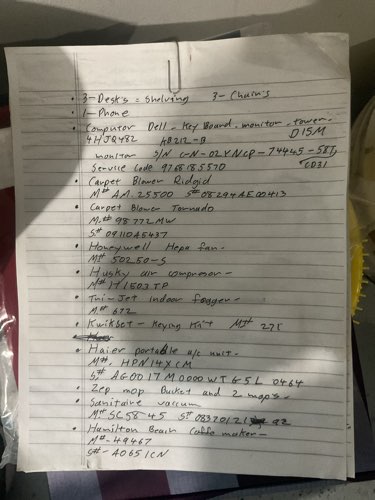 • 3-Desk's = shelving 3- Chair's
• 1-Phone
• Computor Dell - Key Board - monitor - tower-
4HJQ482 KB212-B D15M
monitor S/N CN-02YNCP-74445-
Service Code 9768185570 CD31
• Carpet Blower Ridgid
M# AM.25500 S# 08294AE00413
• Carpet Blower Tornado
M# 98772MW
S# 09110A5437
• Honeywell Hepa fan-
M# 50250-S
• Husky air compresor-
M# H1503TP
• Tri-Jet indoor fogger-
M# 672
• Kwikset - Keying Kit M# 275
• Haier portable a/c unit.
M#. HPN14XCM
S# AG0017M0000WTG5L 0464
• Zep mop Bucket and 2 mop's.
• Sanitaire vaccum
M# SC5845 S# 08370121 92
• Hamilton Beach Coffe maker-
M#-49467
S#- A0651CN